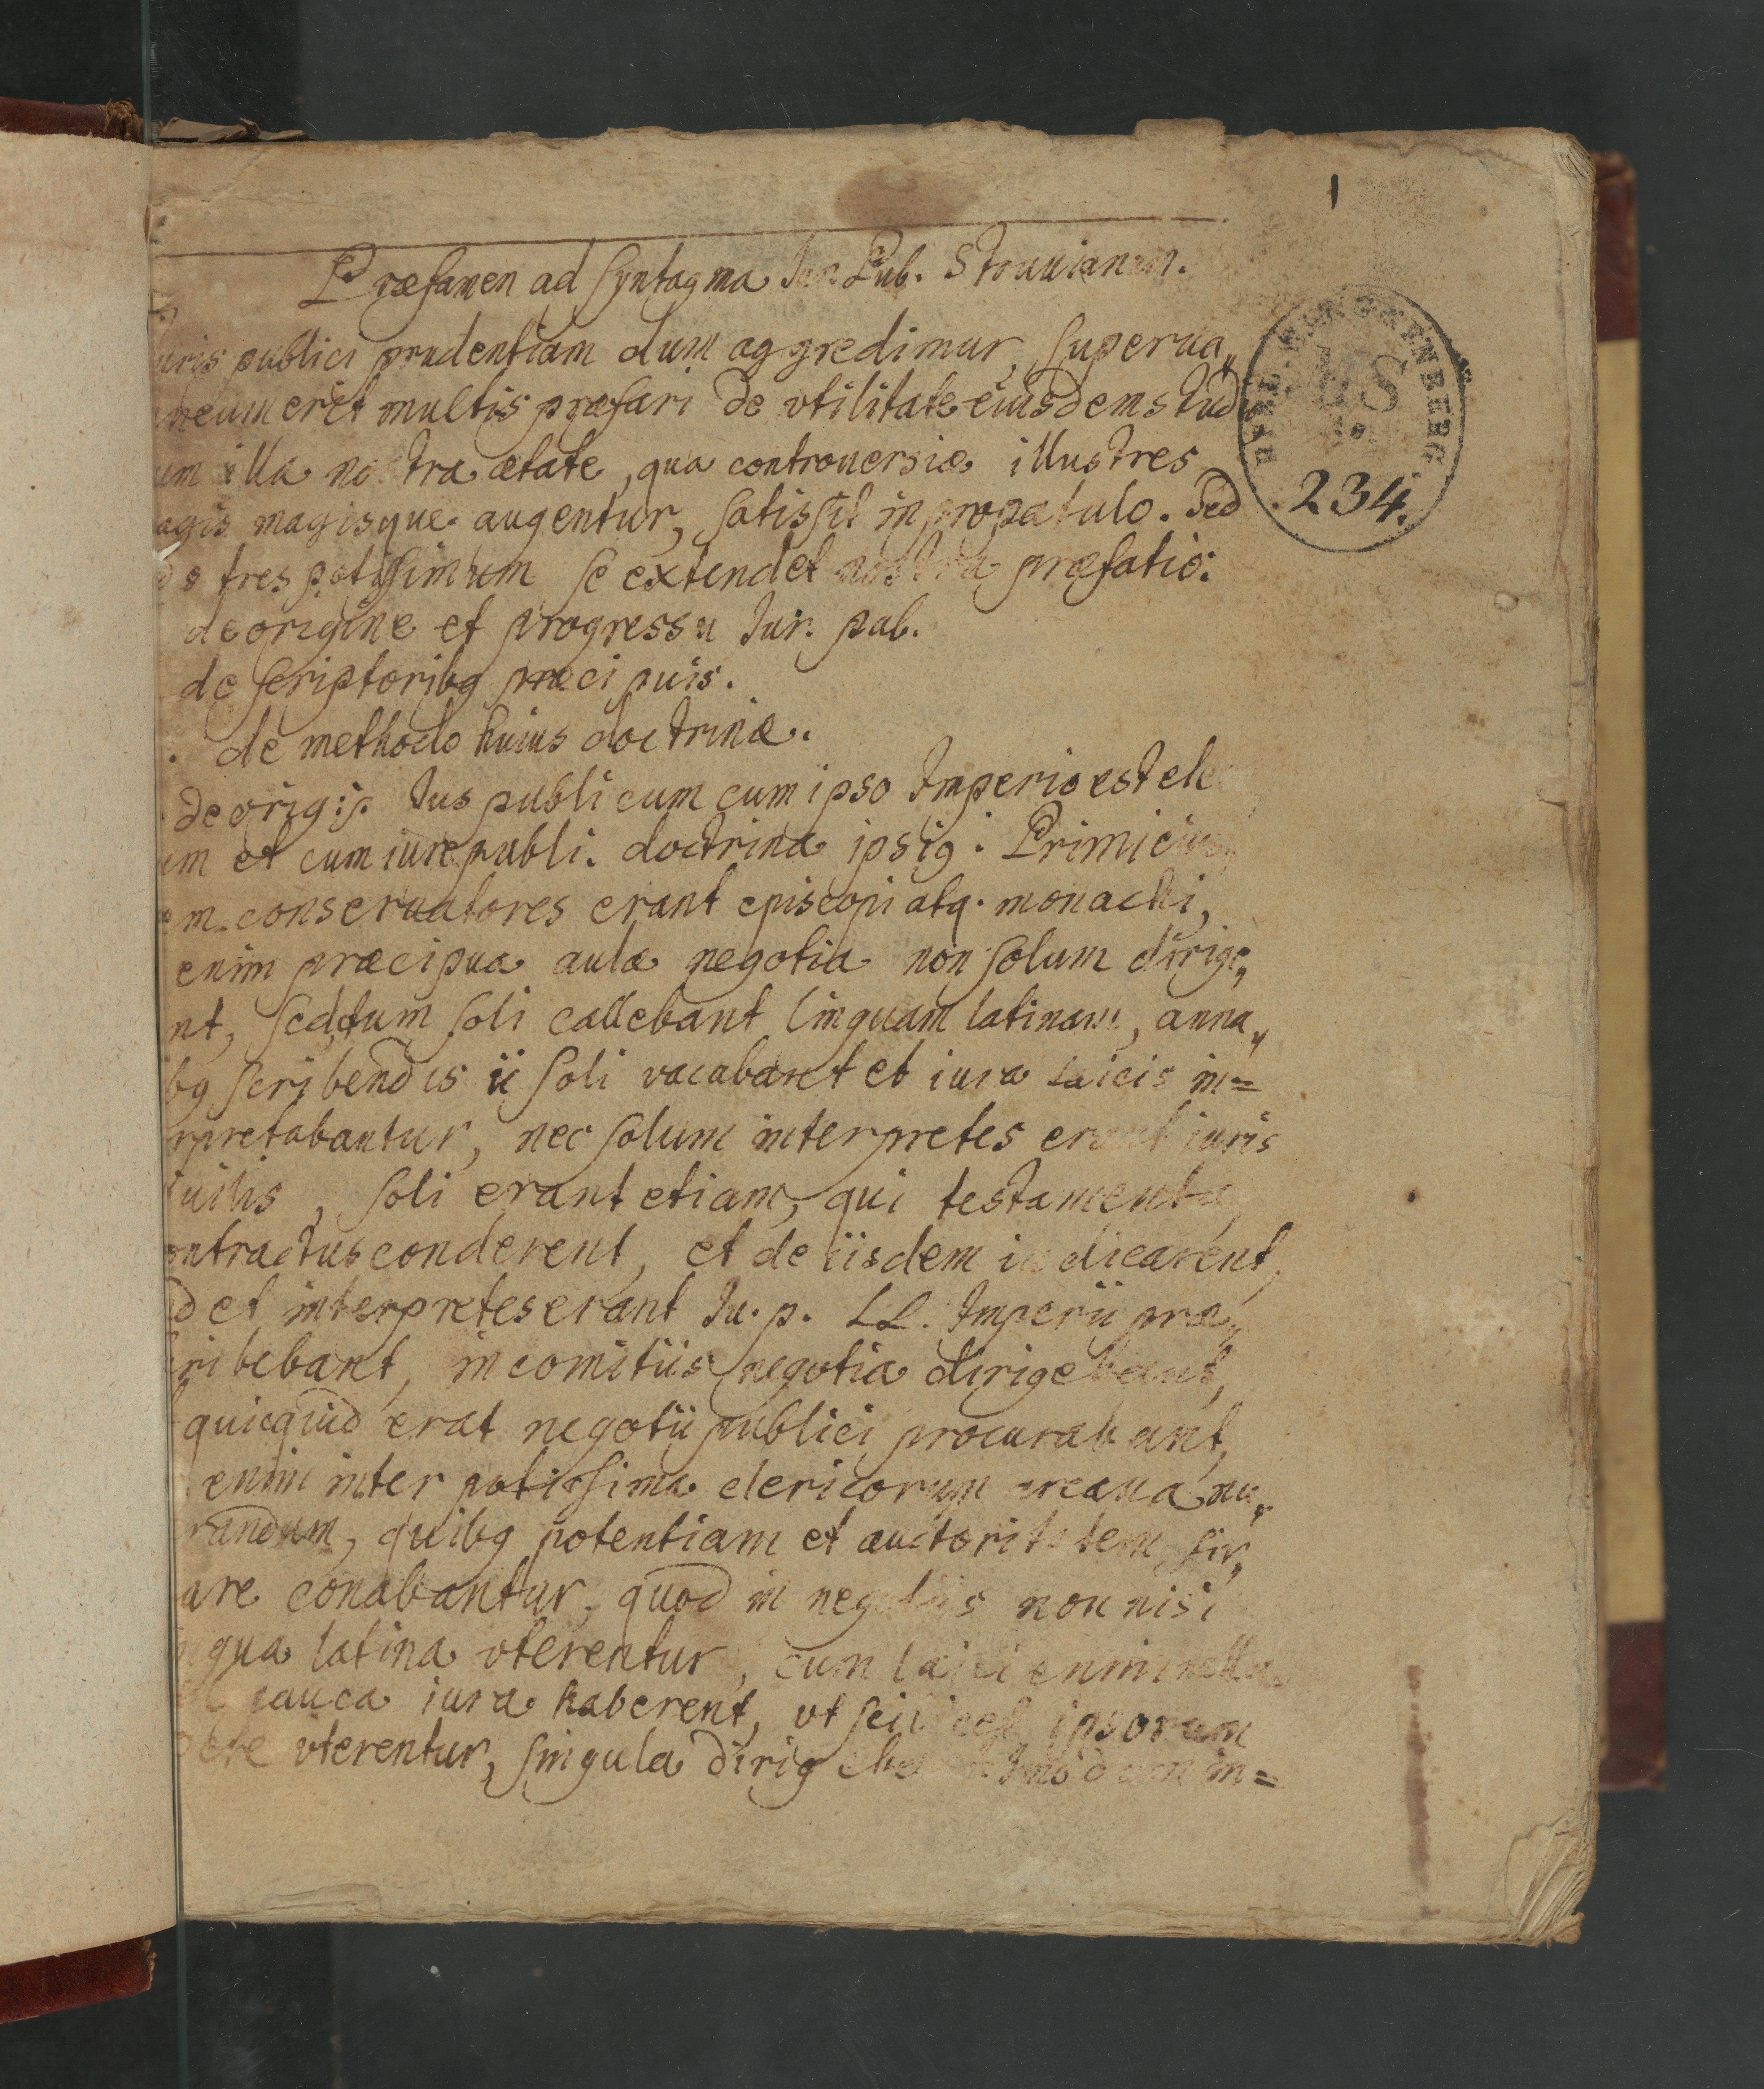 1
Præfamen ad Syntagma Jur. Pub. Struuianum.
uris publici prudentiam dum aggredimur, superua„
neum eret multis præfari de vtilitate eiusdem stud
um illa nostra ætate, qua controuersiæ illustres
agis magisque augentur, satis sit in propatulo. Sed
tres potissimum se extendet nostra præfatio:
de origine et progressu Jur. pub.
de scriptoribq præcipuis.
. de methodo huius doctrinæ.
de orig: p. Jus publicum cum ipso Imperio est
um et cum iure publi. doctrina ipsiq. Primi
m conseruatores erant episcopi atq. monachi,
enim præcipua aulæ negotia non solum dirige„
nt, sed tum soli callebant linguam latinam, anna„
bq scribendis ii soli vacabant et iura laicis in=
rpretabantur, nec solum interpretes erant iuris
iuilis, soli erant etiam, qui testamenta
ontractus conderent, et de iisdem iudicarent,
d et interpretes erant Ju. p. LL. Imperii præ„
ribebant, in comitiis negotia dirigebant,
quicquid erat negotii publici procurabant,
enim inter potissima clericorum arcana nu„
randum, quibq potentiam et auctoritatem fir„
are conabantur, quod in negotiis non nisi
ngua latina vterentur, cum laici enim nulla
pauca iura haberent, vt scilicet ipsorum
vterentur, singula in=
234.